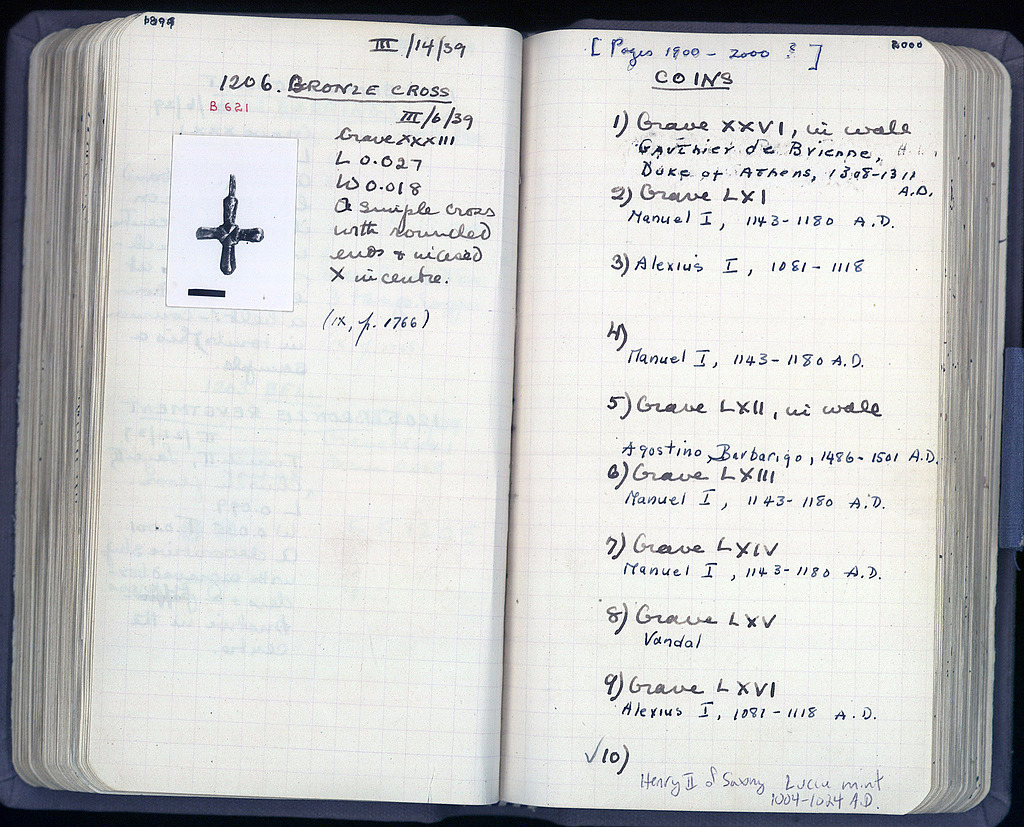 1899
III/14/39
1206. BRONZE CROSS
B 621
III/6/39
Grave XXXIII
L 0.027
W 0.018
A simple cross
with rounded
ends & incised
X in centre.
(IX, p. 1766)
2000
[Pages 1900 - 2000 ?]
COINS
1) Grave XXVI, in wall
Gauthier de Brienne,
Duke of Athens, 1308-1311
A.D.
2) Grave LXI
Manuel I, 1143-1180 A.D.
3) Alexius I, 1081-1118
4)
Manuel I, 1143-1180 A.D.
5) Grave LXII, in wall
Agostino Barbarigo, 1486-1501 A.D.
6) Grave LXIII
Manuel I, 1143-1180 A.D.
7) Grave LXIV
Manuel I, 1143-1180 A.D.
8) Grave LXV
Vandal
9) Grave LXVI
Alexius I, 1081-1118 A.D.
√10)
Henry II of Saxony Lucca mint
1004-1024 A.D.